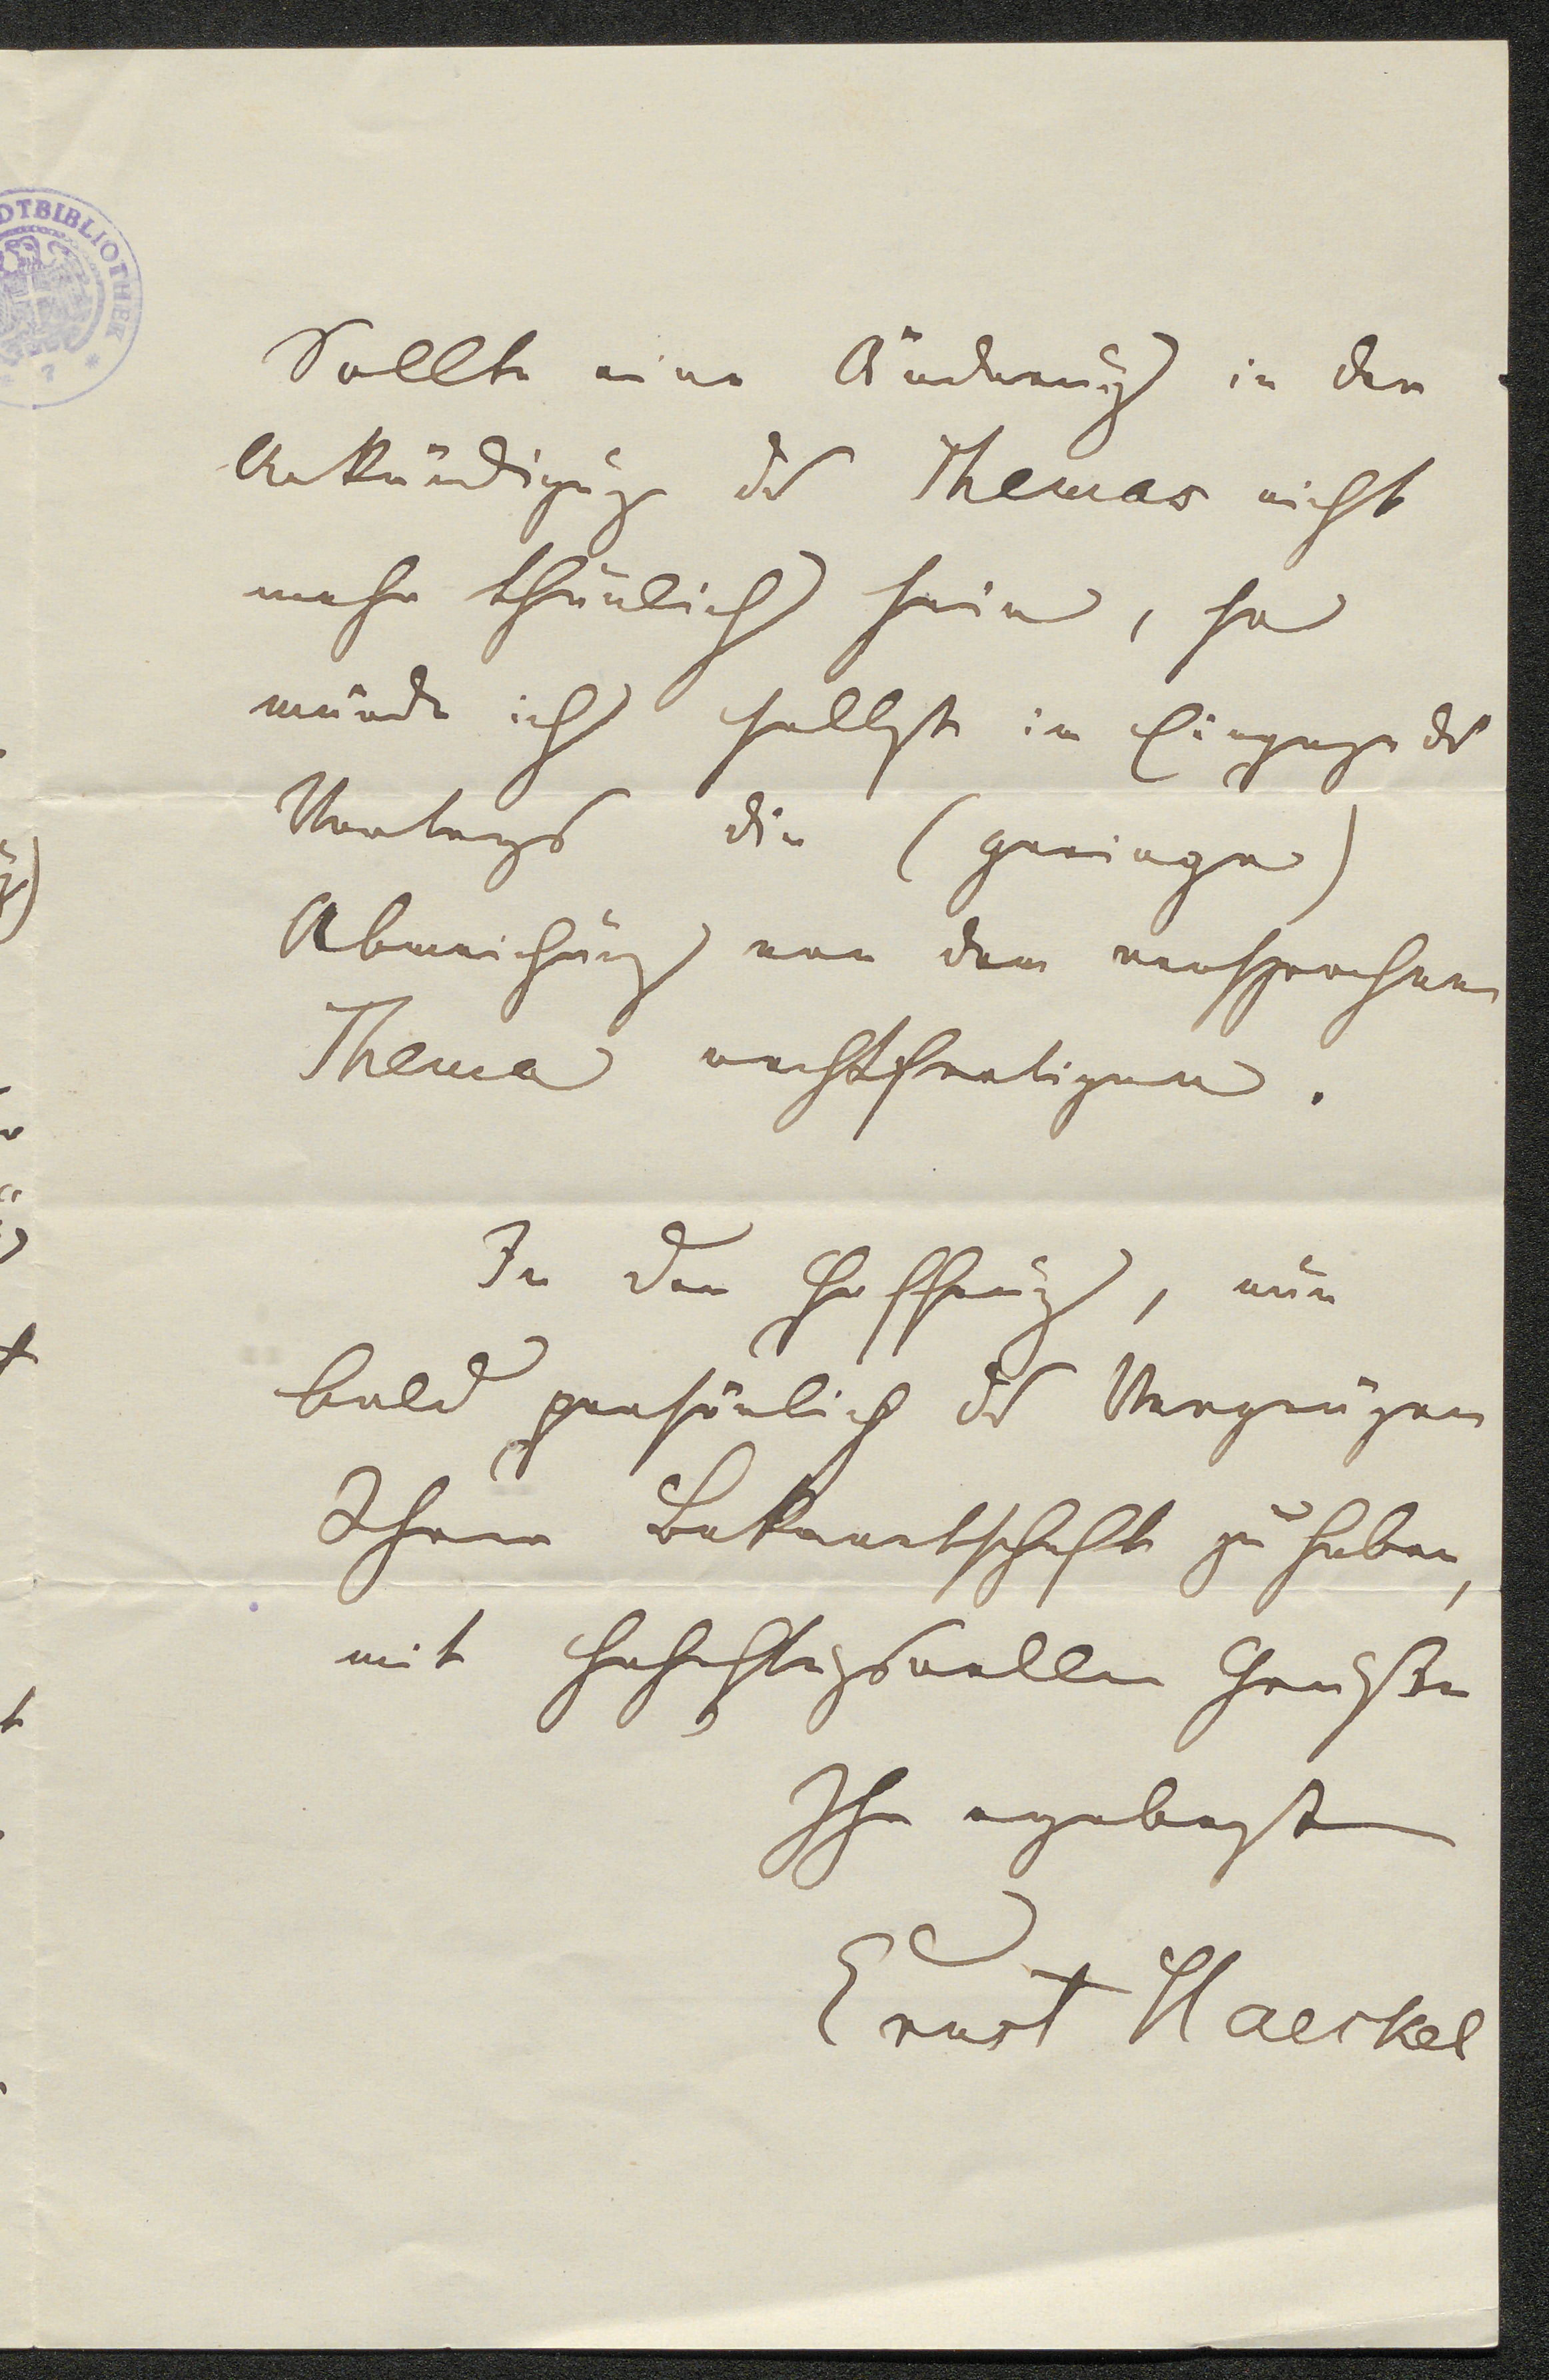 DTBIBLIOTHEK
* 7 *
Sollte eine Änderung in der
Ankündigung des Themas nicht
mehr thunlich sein, so
würde ich selbst im Eingange des
Vortrags die (geringe)
Abweichung von dem versprochenen
Thema rechtfertigen.
In der Hoffnung, nun
bald persönlich das Vergnügen
Ihrer Bekanntschaft zu haben,
mit hochachtungsvollen Grüßen
Ihr ergebenster
Ernst Haeckel